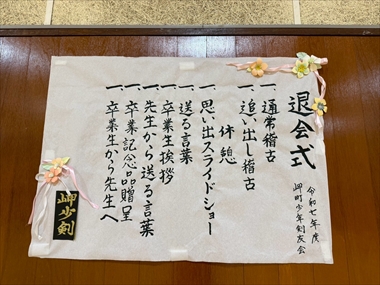 退会式
令和七年度
岬町少年剣友会
一、通常稽古
一、追い出し稽古
休憩
一、思い出スライドショー
一、送る言葉
一、卒業生挨拶
一、先生から送る言葉
一、卒業記念品贈呈
一、卒業生から先生へ
岬少剣